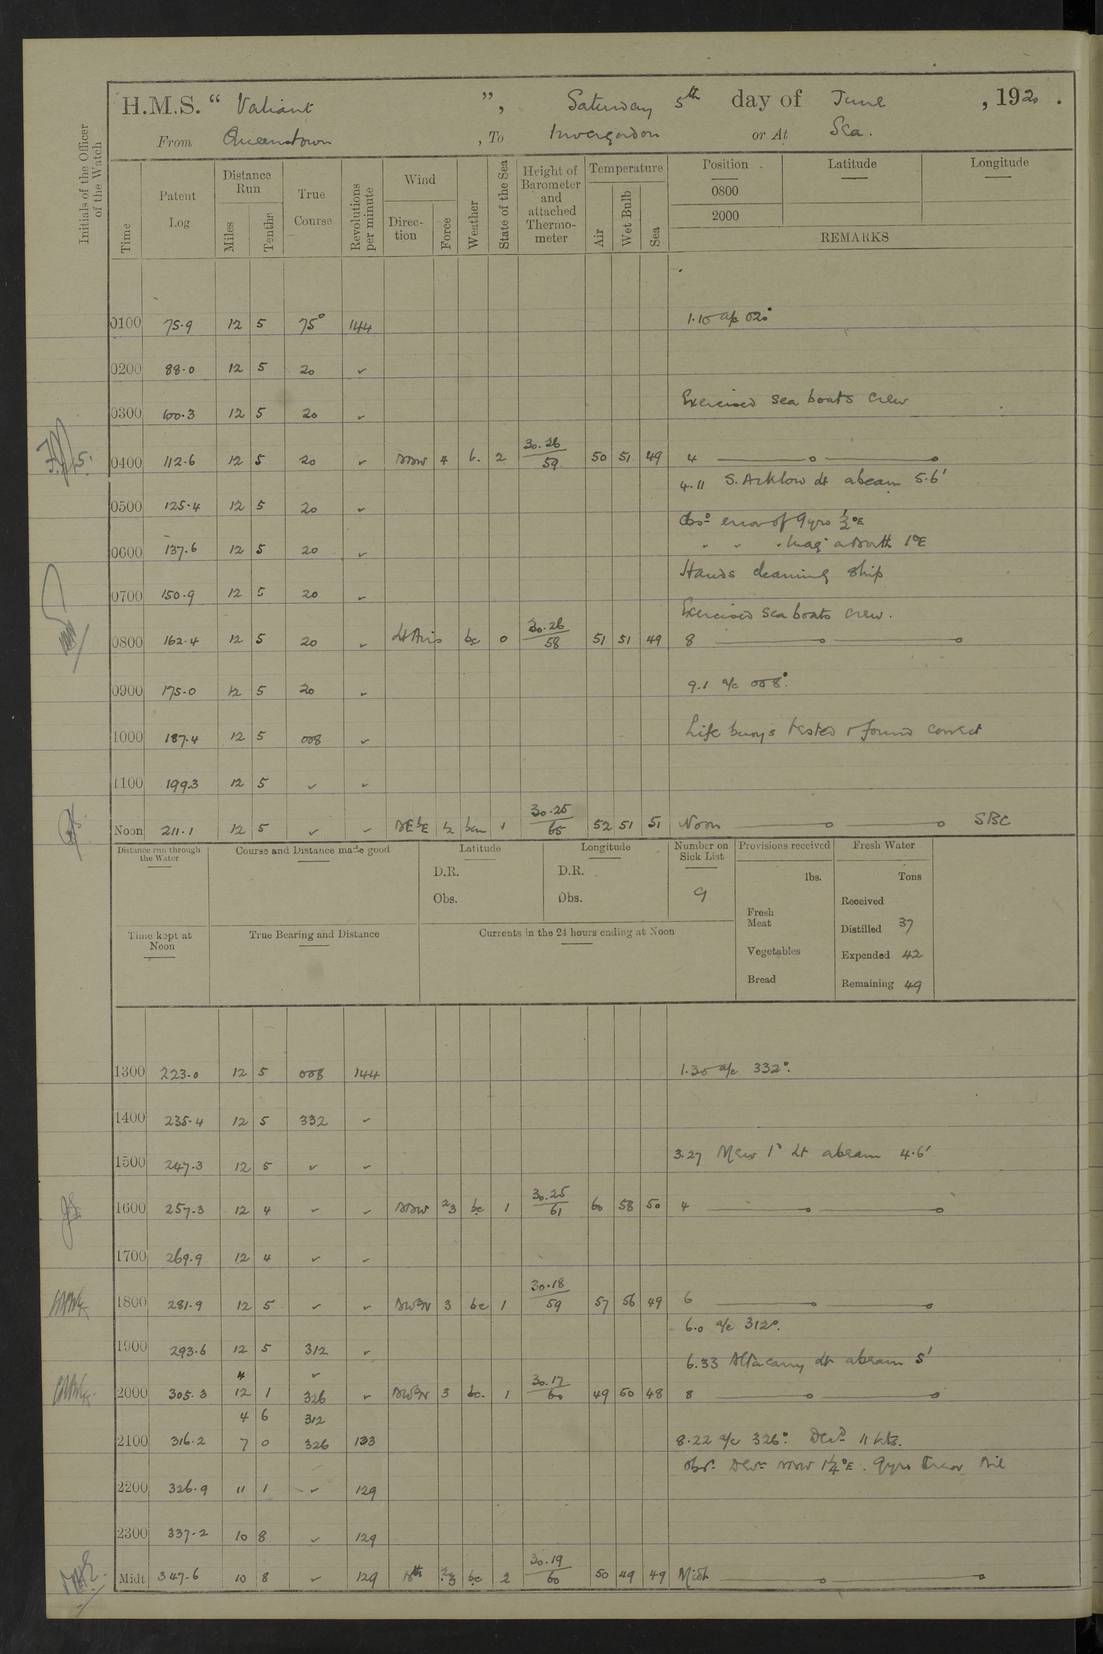 H.M.S. “ Valiant ”, Saturday 5th day of June , 1920 .
From Queenstown , To Invergordon or At Sea.
Initials of the Officer of the Watch
Time Patent Log Distance Run Miles Tenths True Course Revolutions per minute Wind Direction Force Weather State of the Sea Height of Barometer and attached Thermometer Temperature Air Wet Bulb Sea Position Latitude Longitude
0800
2000
REMARKS
0100 75.9 12 5 75° 144 1.10 a/c 020°
0200 88.0 12 5 20 ✓
0300 100.3 12 5 20 ✓ Exercised sea boats crew
0400 112.6 12 5 20 ✓ NNW 4 b. 2 30.26/59 50 51 49 4
4.11 S. Arklow Lt abeam 5.6'
0500 125.4 12 5 20 ✓
error of Gyro ½°E
0600 137.6 12 5 20 ✓ " " " Mag 1°E
Hands cleaning ship
0700 150.9 12 5 20 ✓
Exercised sea boats crew.
0800 162.4 12 5 20 ✓ Lt Airs bc 0 30.26/58 51 51 49 8
0900 175.0 12 5 20 ✓ 9.1 a/c 008°.
1000 187.4 12 5 008 ✓ Life buoys tested & found correct
1100 199.3 12 5 ✓ ✓
Noon 211.1 12 5 ✓ ✓ NEbE ½ bcm 1 30.25/65 52 51 51 Noon SBC
Distance run through the Water Course and Distance made good Latitude Longitude Number on Sick List Provisions received Fresh Water
D.R. D.R. lbs. Tons
Obs. Obs. 9 Received
Fresh Meat Distilled 37
Time kept at Noon True Bearing and Distance Currents in the 24 hours ending at Noon
Vegetables Expended 42
Bread Remaining 49
1300 223.0 12 5 008 144 1.30 a/c 332°.
1400 235.4 12 5 332 ✓
1500 247.3 12 5 ✓ ✓ 3.27 Mew Id Lt abeam 4.6'
1600 257.3 12 4 ✓ ✓ NNW 2/3 bc 1 30.25/61 60 58 50 4
1700 269.9 12 4 ✓ ✓
1800 281.9 12 5 ✓ ✓ NWbN 3 bc 1 30.18/59 57 56 49 6
6.0 a/c 312°.
1900 293.6 12 5 312 ✓
6.33 Altacarry Lt abeam 5'
" ✓
2000 305.3 12 1 326 ✓ NWbN 3 bc. 1 30.17/60 49 50 48 8
4 6 312
2100 316.2 7 0 326 133 8.22 a/c 326°. 11 kts.
NNW 1¼°E. Gyro Error Nil
2200 326.9 11 1 ✓ 129
2300 337.2 10 8 ✓ 129
Midt 347.6 10 8 ✓ 129 Nth 2/3 bc 2 30.19/60 50 49 49 Midt